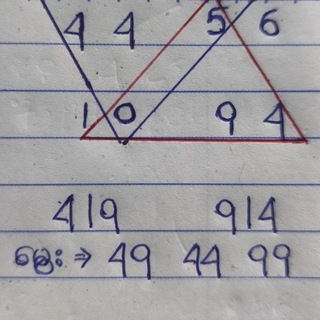 4 4 5 6
1 0 9 4
419 914
ခွေး ⇒ 49 44 99